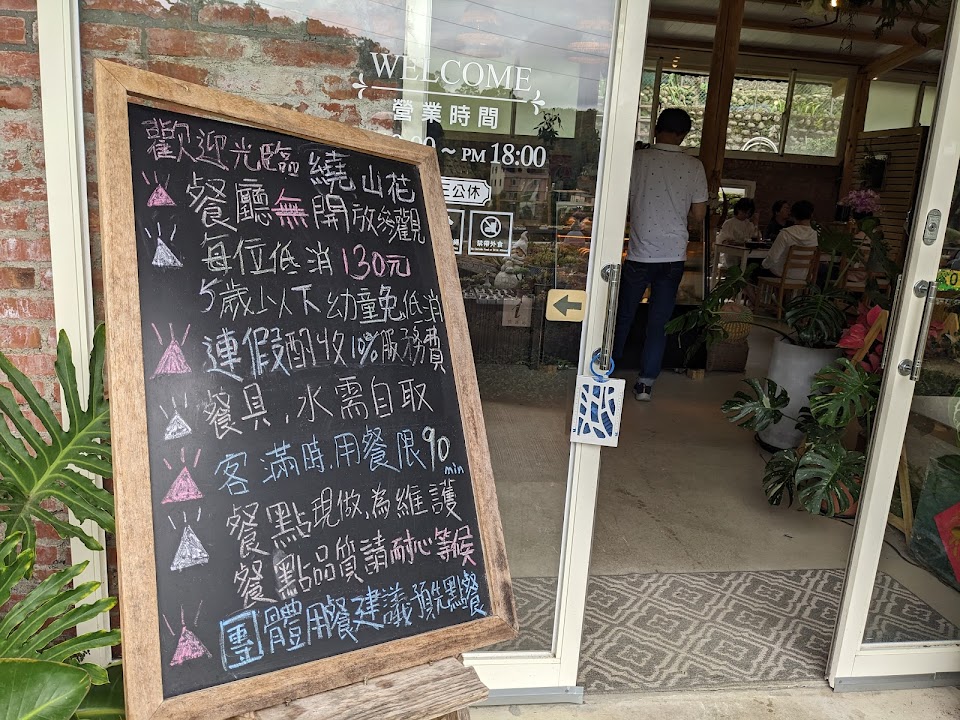 歡迎光臨 繞山花
餐廳無開放參觀
每位低消130元
5歲以下幼童免低消
連假酌收10%服務費
餐具,水需自取
客滿時,用餐限90min
餐點現做,為維護
餐點品質請耐心等候
團體用餐建議預先點餐
WELCOME
營業時間
0~PM 18:00
三公休
禁帶外食